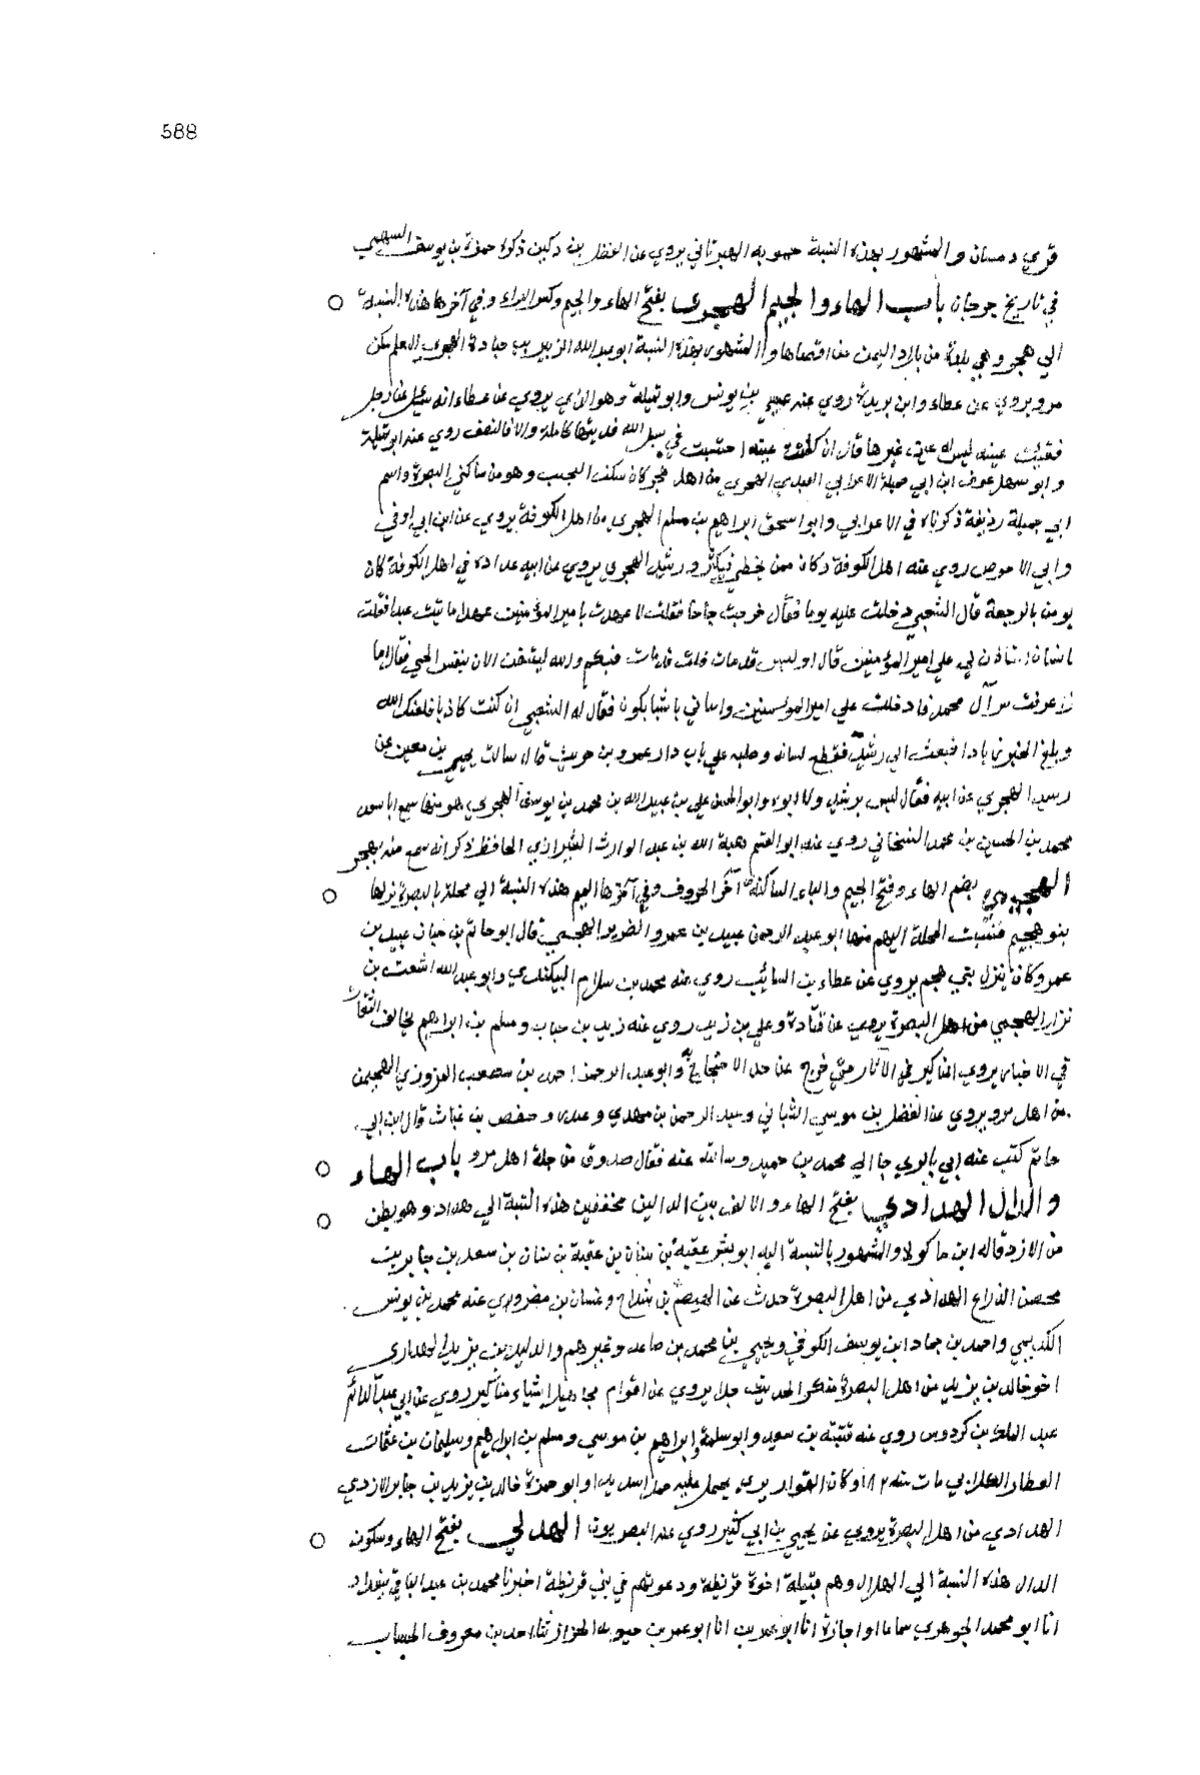 588
قري دهستان والمشهور بهذه النسبة حمويه الهبرثاني يروي عن الفضل بن دكين ذكره حمزة بن يوسف السهمي
في تاريخ جرجان باب الهاء والجيم الهجري بفتح الهاء والجيم وكسر الراء وفي آخرها هذه النسبة
الي هجر وهي بلدة من بلاد اليمن من اقصاها والمشهور بهذه النسبة ابو عبد الله الزبير بن جنادة الهجري المعلم سكن
مرو يروي عن عطاء وابن بريدة روي عنه عيسي بن يونس وابو تميلة وهو الذي يروي عن عطاء انه سئل عن رجل
فقئت عينه ليس له عين غيرها قال ان كانت عينه احتسبت في سبيل الله فديتها كاملة والا فالنصف روي عنه ابو تميلة
وابو سهل عوف ابن ابي جميلة الاعرابي العبدي الهجري من اهل هجر كان سكن البصرة وهو من ساكني البصرة واسم
ابي جميلة رزينة ذكرناه في الاعرابي وابو اسحق ابراهيم بن مسلم الهجري من اهل الكوفة يروي عن ابن ابي اوفي
وابي الاحوص روي عنه اهل الكوفة وكان ممن يخطي فيكثر ورشيد الهجري يروي عن ابيه عداده في اهل الكوفة كان
يومن بالرجعة قال الشعبي دخلت عليه يوما فقال خرجت حاجا فقلت لا عهدن بامير المؤمنين عهدا ما تيت عبدا فقلت
لانسان استاذن لي علي امير المؤمنين قال اوليس قد مات قلت قد مات فيكم والله ليتنفس الان بنفس الحي فقال اما
اذ عرفت سر آل محمد فادخل قلت علي امير المؤمنين وانباني باشياء تكون فقال له الشعبي ان كنت كاذبا فلعنك الله
وبلغ الخبر زيادا فبعث الي رشيد فقطع لسانه وصلبه علي باب دار عمرو بن حريث قال سالت يحيي بن معين عن
رشيد الهجري عن ابيه فقال ليس برشيد ولا ابوه وابو الحسن علي بن عبيد الله بن محمد بن يوسف الهجري هو منها سمع
محمد بن الحسين بن محمد روي عنه ابو القسم هبة الله بن عبد الوارث الشيرازي الحافظ ذكر انه سمع منه بهجر
الهجيمي بضم الهاء وفتح الجيم والياء الساكنة آخر الحروف وفي آخرها الميم هذه النسبة الي محلة بالبصرة نزلها
بنو هجيم فنسبت المحلة اليهم منها ابو عبد الرحمن عبيد بن عمرو الضرير الهجيمي قال ابو حاتم بن حبان عبيد بن
عمرو كان ينزل بني هجيم يروي عن عطاء بن السائب روي عنه محمد بن سلام البيكندي وابو عبد الله اشعث بن
نزار الهجيمي من اهل البصرة يروي عن قتادة وعلي بن زيد روي عنه زيد بن حباب ومسلم بن ابراهيم يخالف الثقات
في الاخبار يروي المناكير في الآثار حتي خرج عن حد الاحتجاج به وابو عبد الرحمن احمد بن مصعب المروزي الهجيمي
من اهل مرو يروي عن الفضل بن موسي الشيباني وعبد الرحمن بن مهدي وعبدة وحفص بن غياث قال ابن ابي
حاتم كتب عنه ابي بالري جا الي محمد بن حميد وسالته عنه فقال صدوق من جلة اهل مرو باب الهاء
والدال الهدادي بفتح الهاء والالف بين الدالين مخففين هذه النسبة الي هداد وهو بطن
من الازد قاله ابن ماكولا والمشهور بالنسبة اليه ابو بشر عقبة بن سنان بن عقبة بن سنان بن سعد بن جابر بن
محصن الذراع الهدادي من اهل البصرة حدث عن الهيصم بن شداخ وغسان بن مضر روي عنه محمد بن يونس
الكديمي واحمد بن حماد ابن يوسف الكوفي ويحيي بن محمد بن صاعد وغيرهم والدليل بن يزيد الهدادي
اخو خالد بن يزيد من اهل البصرة منكر الحديث جدا يروي عن اقوام مجاهيل اشياء مناكير روي عن ابي عبد الدائم
عبد الملك بن كردوس روي عنه قتيبة بن سعيد وابو سلمة ابراهيم بن موسي ومسلم بن ابراهيم وسليمان بن عثمان
العطار الكلابي مات سنة ١٨٢ وكان القواريري يحمل عليه حملا شديدا وابو حمزة خالد بن يزيد بن جابر الازدي
الهدادي من اهل البصرة يروي عن يحيي بن ابي كثير روي عنه البصريون الهدلي بفتح الهاء وسكون
الدال هذه النسبة الي الهدل وهم قبيلة اخوة قريظة ودعوتهم في بني قريظة اخبرنا محمد بن عبد الباقي ببغداد
انا ابو محمد الجوهري سماعا او اجازة انا ابو عمر بن حيويه الخزاز ثنا احمد بن معروف الخشاب